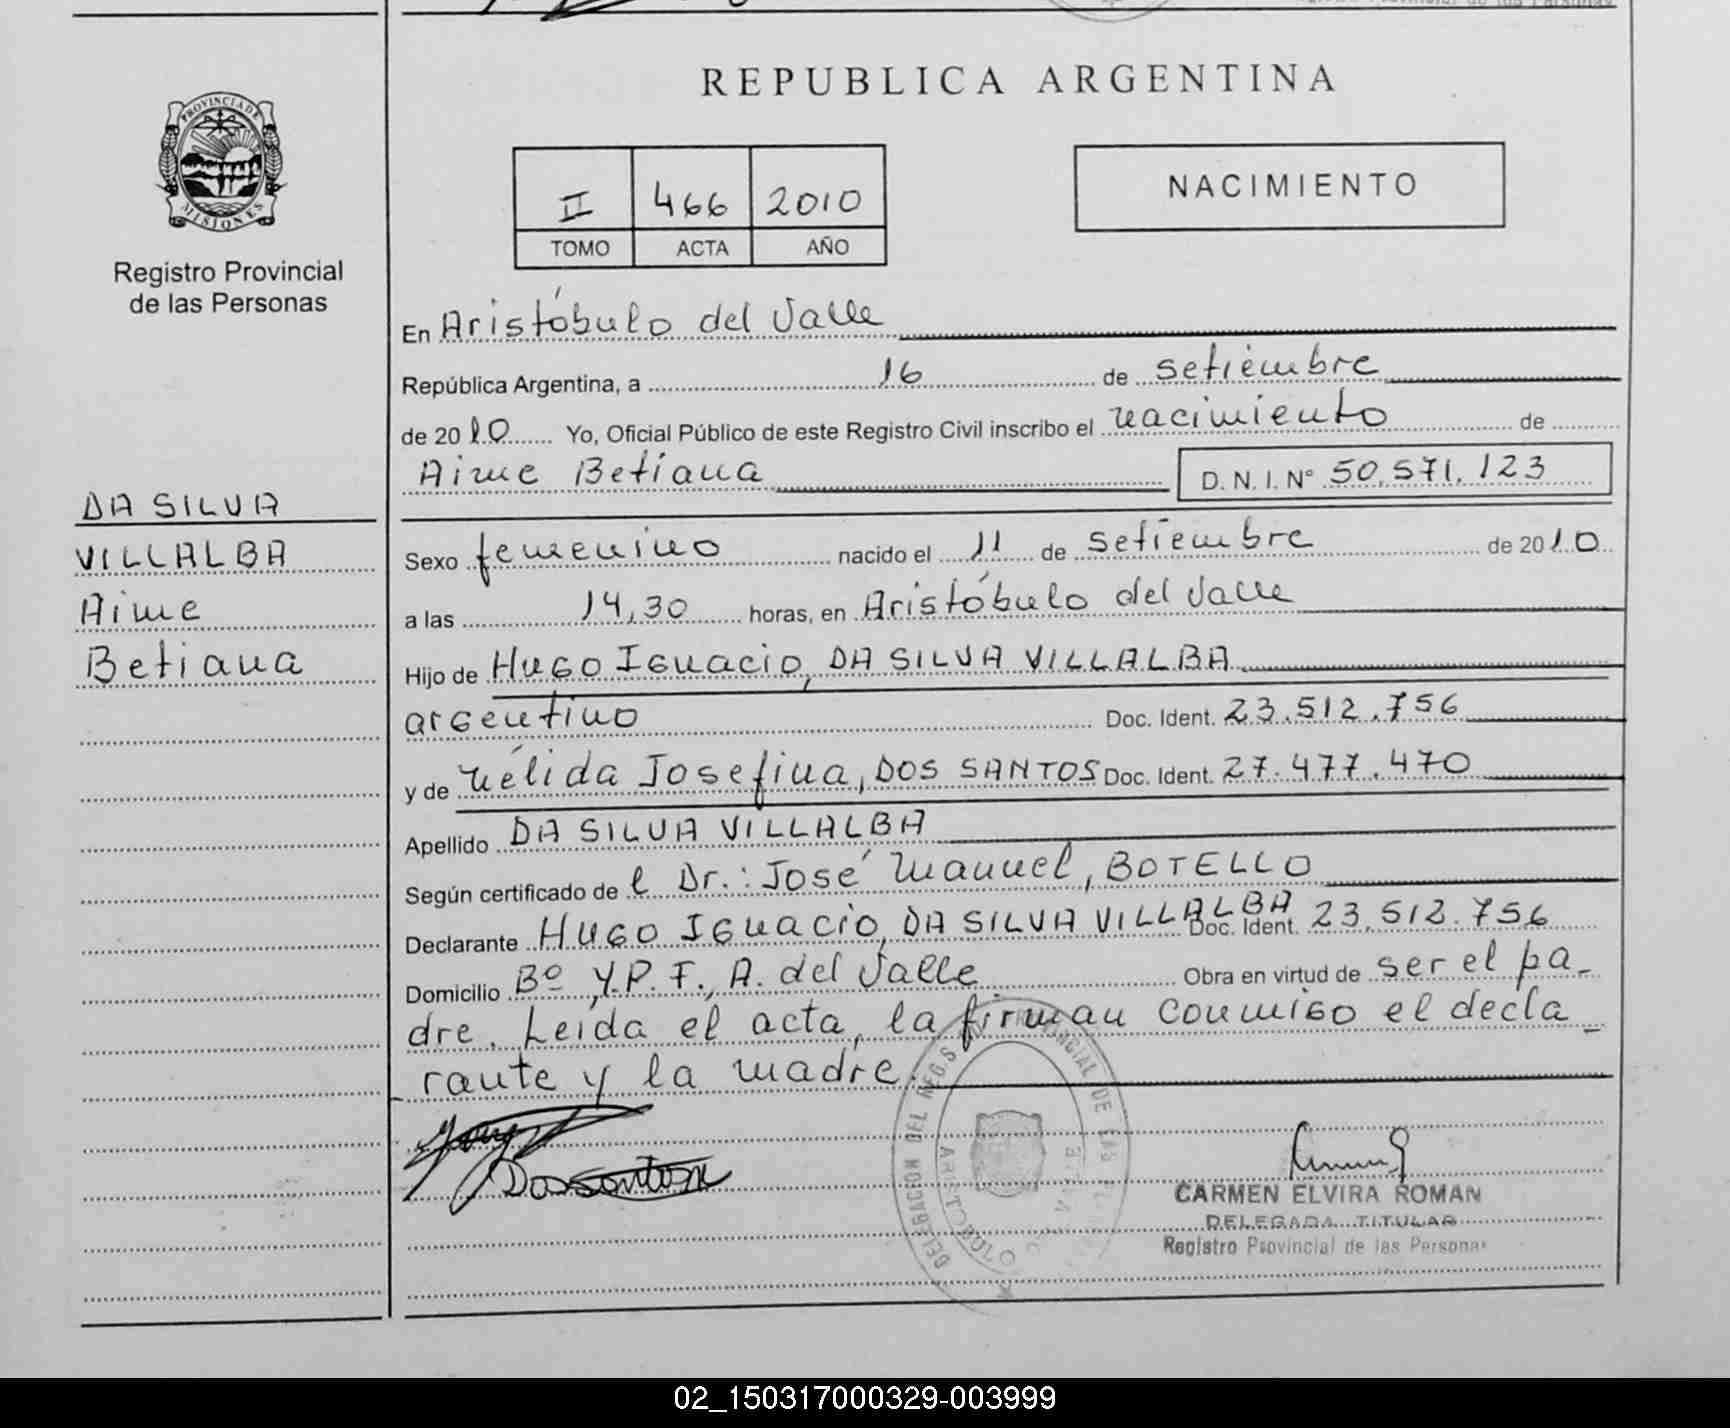 REPUBLICA ARGENTINA
PROVINCIA DE
MISIONES
Registro Provincial
de las Personas
II 466 2010
TOMO ACTA AÑO
NACIMIENTO
En Aristóbulo del Valle
República Argentina, a 16 de setiembre
de 2010 Yo, Oficial Público de este Registro Civil inscribo el nacimiento de
Aime Betiana D. N. I. Nº 50.571.123
DA SILVA
VILLALBA
Aime
Betiana
Sexo femenino nacido el 11 de setiembre de 2010
a las 14,30 horas, en Aristóbulo del Valle
Hijo de Hugo Ignacio, DA SILVA VILLALBA
argentino Doc. Ident. 23.512.756
y de Nélida Josefina, DOS SANTOS Doc. Ident. 27.477.470
Apellido DA SILVA VILLALBA
Según certificado de l Dr.: José Manuel, BOTELLO
Declarante Hugo Ignacio, DA SILVA VILLALBA Doc. Ident. 23.512.756
Domicilio Bº Y.P.F., A. del Valle Obra en virtud de ser el pa-
dre. Leída el acta, la firman conmigo el decla-
rante y la madre.
Dossantos
DELEGACION DEL REG. PROVINCIAL DE LAS
ARISTOBULO
CARMEN ELVIRA ROMAN
DELEGADA TITULAR
Registro Provincial de las Personas
02_150317000329-003999